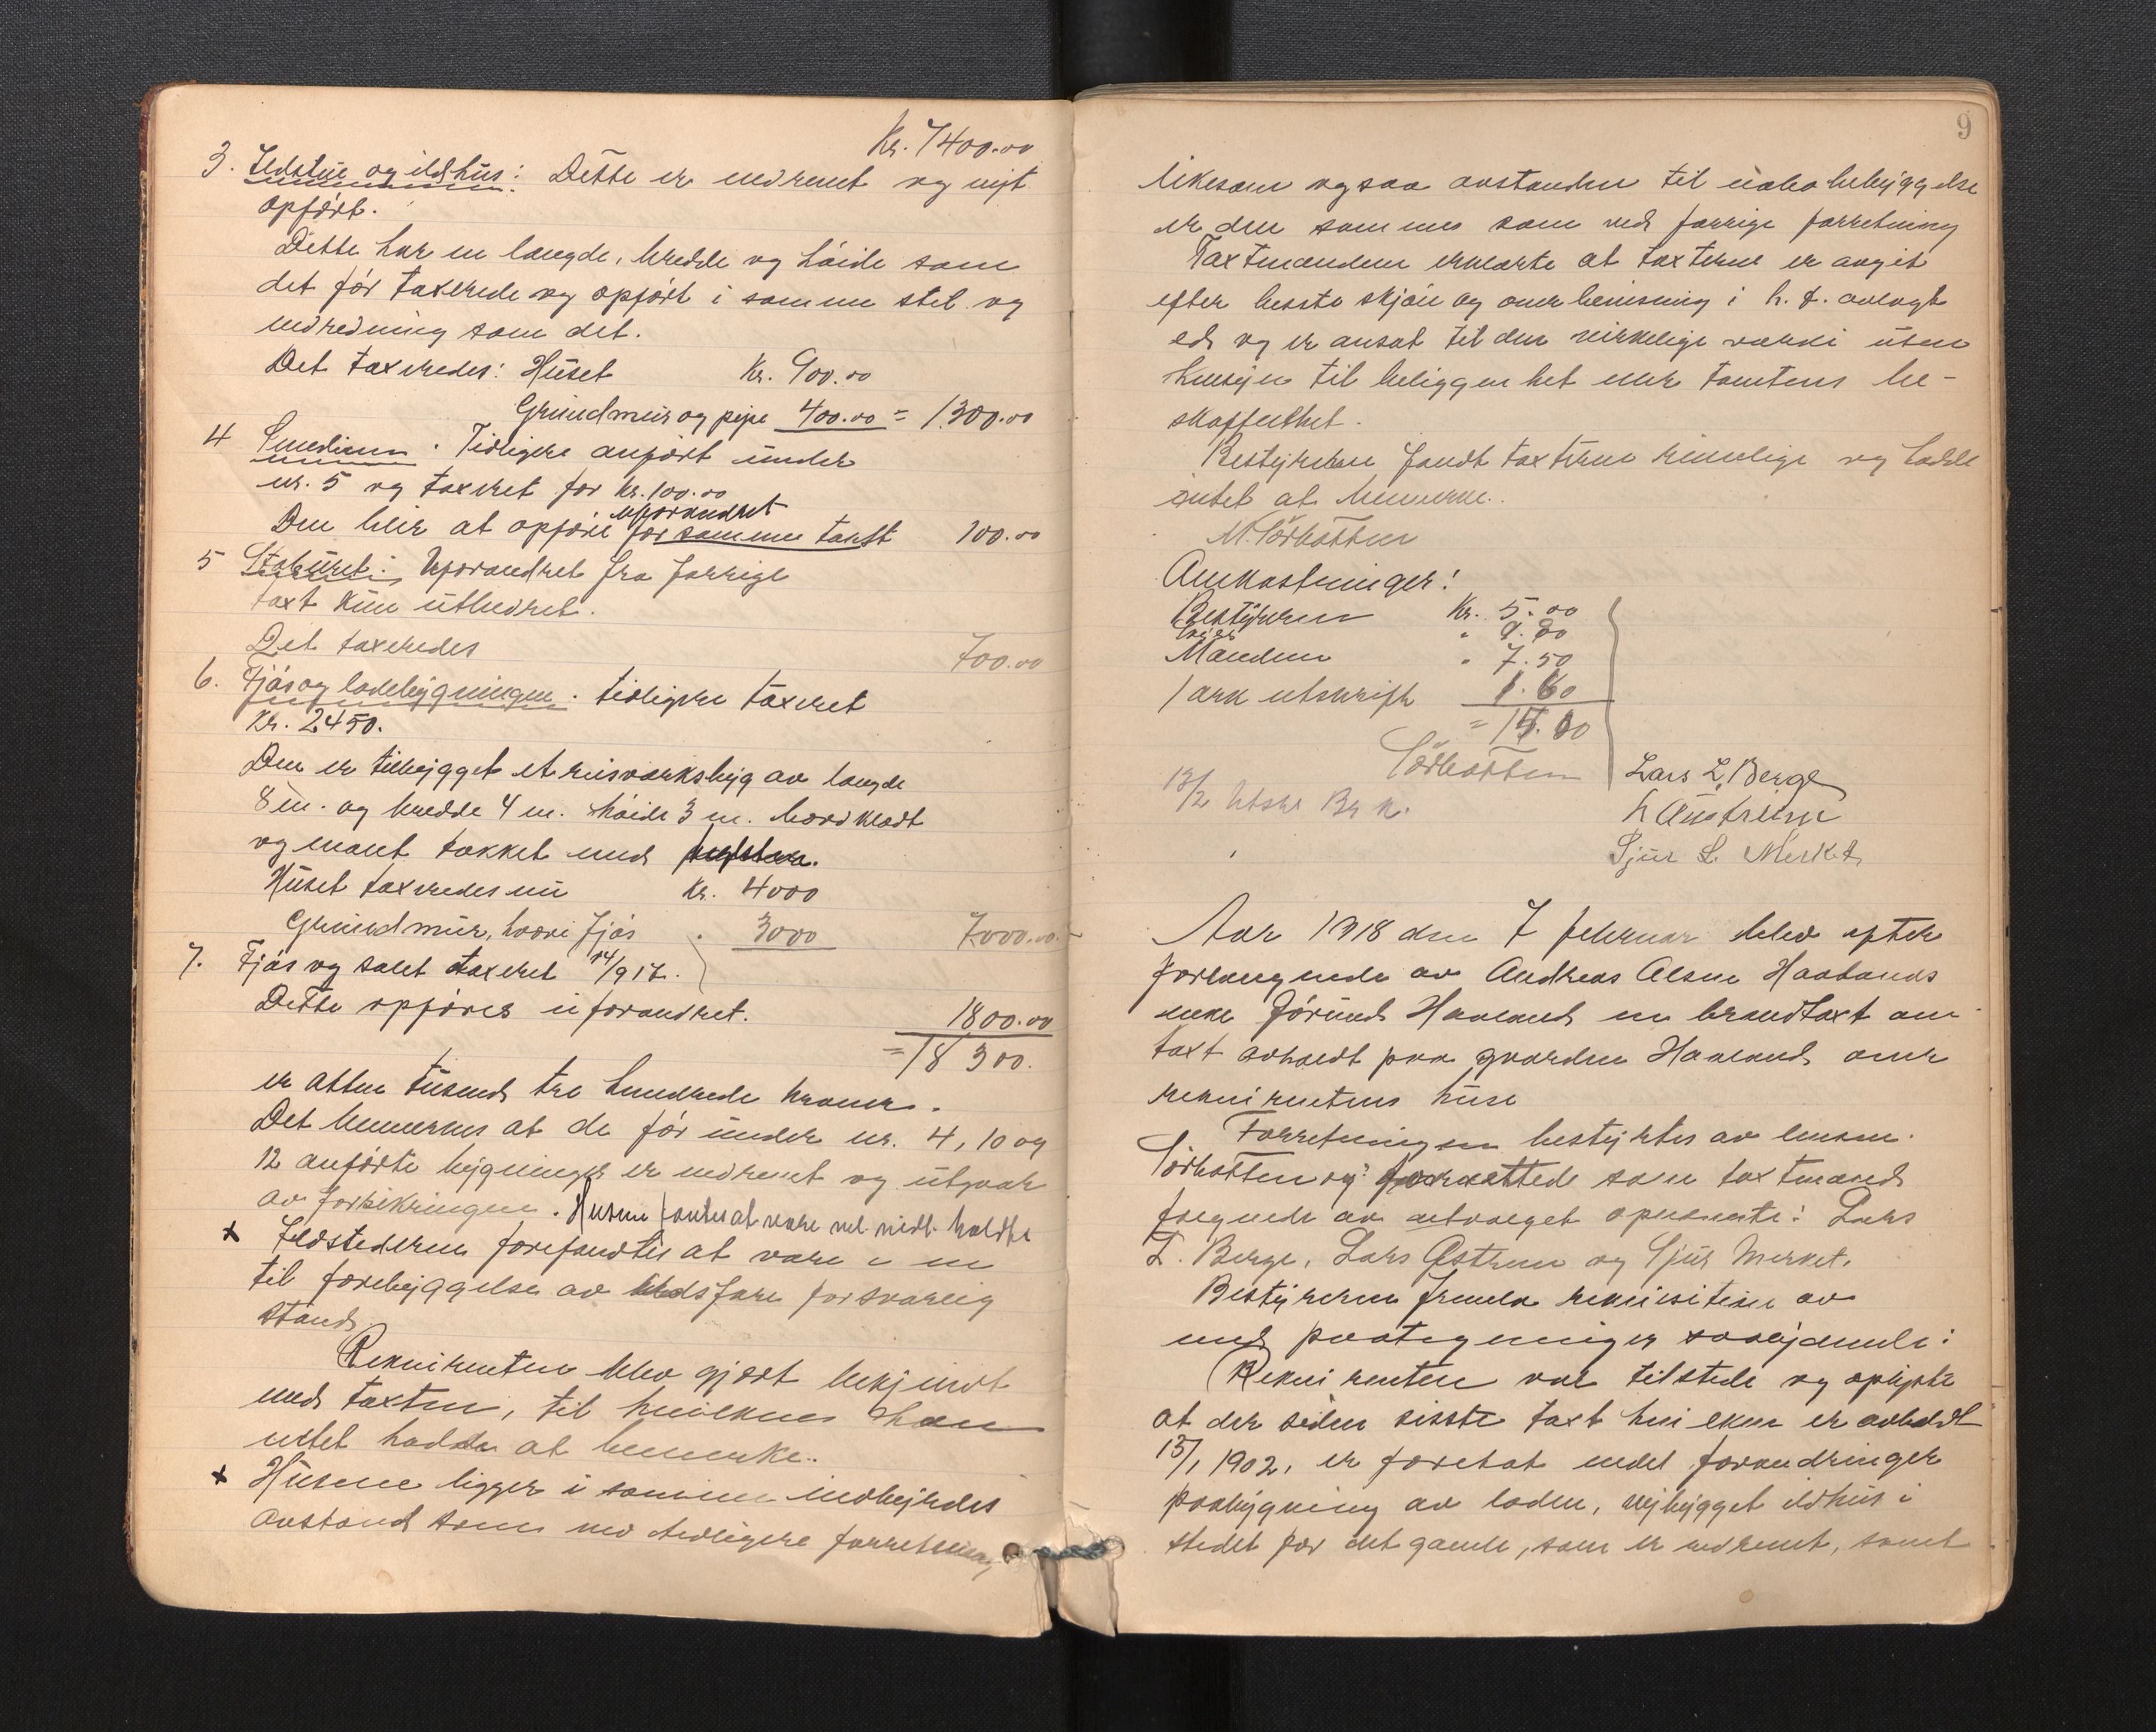 Kr. 7400.00
3. Ildstue og ildhus: Dette er nedrevet og nyt
opfört.
Dette har en længde, bredde og höide som
det för taxerede og opfört i samme stil og
indredning som det.
Det taxeredes: Huset Kr. 900.00
Grundmur og pipe 400.00 = 1300.00
4 Smedien. Tidligere anfört under
nr. 5 og taxeret for Kr. 100.00
uforandret
Den blir at opföre for samme takst 100.00
5 Stabüret: Uforandret fra forrige
taxt kun utbedret.
Det taxeredes 700.00
6. Fjös og ladebygningen. tidligere taxeret
Kr. 2450.
Den er tilbygget et bisværksbyg av længde
8 m. og bredde 4 m. höide 3 m. bordklædt
og tækket med
Huset taxeredes nu Kr. 4000
Grundmur, hvori fjös . 3000 7000.00
7. Fjös og salet taxeret 14/9 17.
Dette opföres uforandret. 1800.00
= 18 300.
er atten tusend tre hundrede kroner.
Det bemerkes at de för under nr. 4, 10 og
12 anförte bygninger er nedrevet og utgaar
av forsikringen. Husene fantes at være vel vedl. holdte
x Ildstederne forefandtes at være i en
til forebyggelse av ildsfare forsvarlig
stand.
Rekvirenten blev gjort bekjendt
med taxten, til hvilken han
intet hadde at bemerke.
x Husene ligger i samme indbyrdes
avstand som ved tidligere forretning
9
likesom ogsaa avstanden til nabobebyggelse
er den samme som ved forrige forretning
Taxtmændene erklærte at taxterne er avgit
efter beste skjön og overbevisning i h. t. avlagt
ed og er ansat til den virkelige værdi uten
hensyn til beliggenhet eller tomtens be-
skaffenhet.
Bestyreren fandt taxterne rimelige og hadde
intet at bemerke.
M. Sörbotten
Omkostninger:
Bestyreren Kr. 5.00
Mændene " 7.50
1 ark utskrift 1.60
Sörbotten
Lars L. Berge
13/2 Utskr Br k.
L Austreim
Sjur L. Merket
Aar 1918 den 7 februar blev efter
forlangende av Andreas Olsen Haalands
enke Jörund Haaland en brandtaxt om
taxt avholdt paa gaarden Haaland over
rekvirentens huse
Forretningen bestyrtes av lensm.
Sörbotten og fremmöttede som taxtmænd
fölgende av utvalget opnævnte: Lars
L. Berge, Lars Östrem og Sjur Merket.
Bestyreren fremla rekvisition av
med paategninger saalydende:
Rekvirenten var tilstede og oplyste
at der siden sisste taxt hvilken er avholdt
15/1 1902, er foretat endel forandringer
paabygning av laden, nybygget ildhus i
stedet for det gamle, som er nedrevet, samt